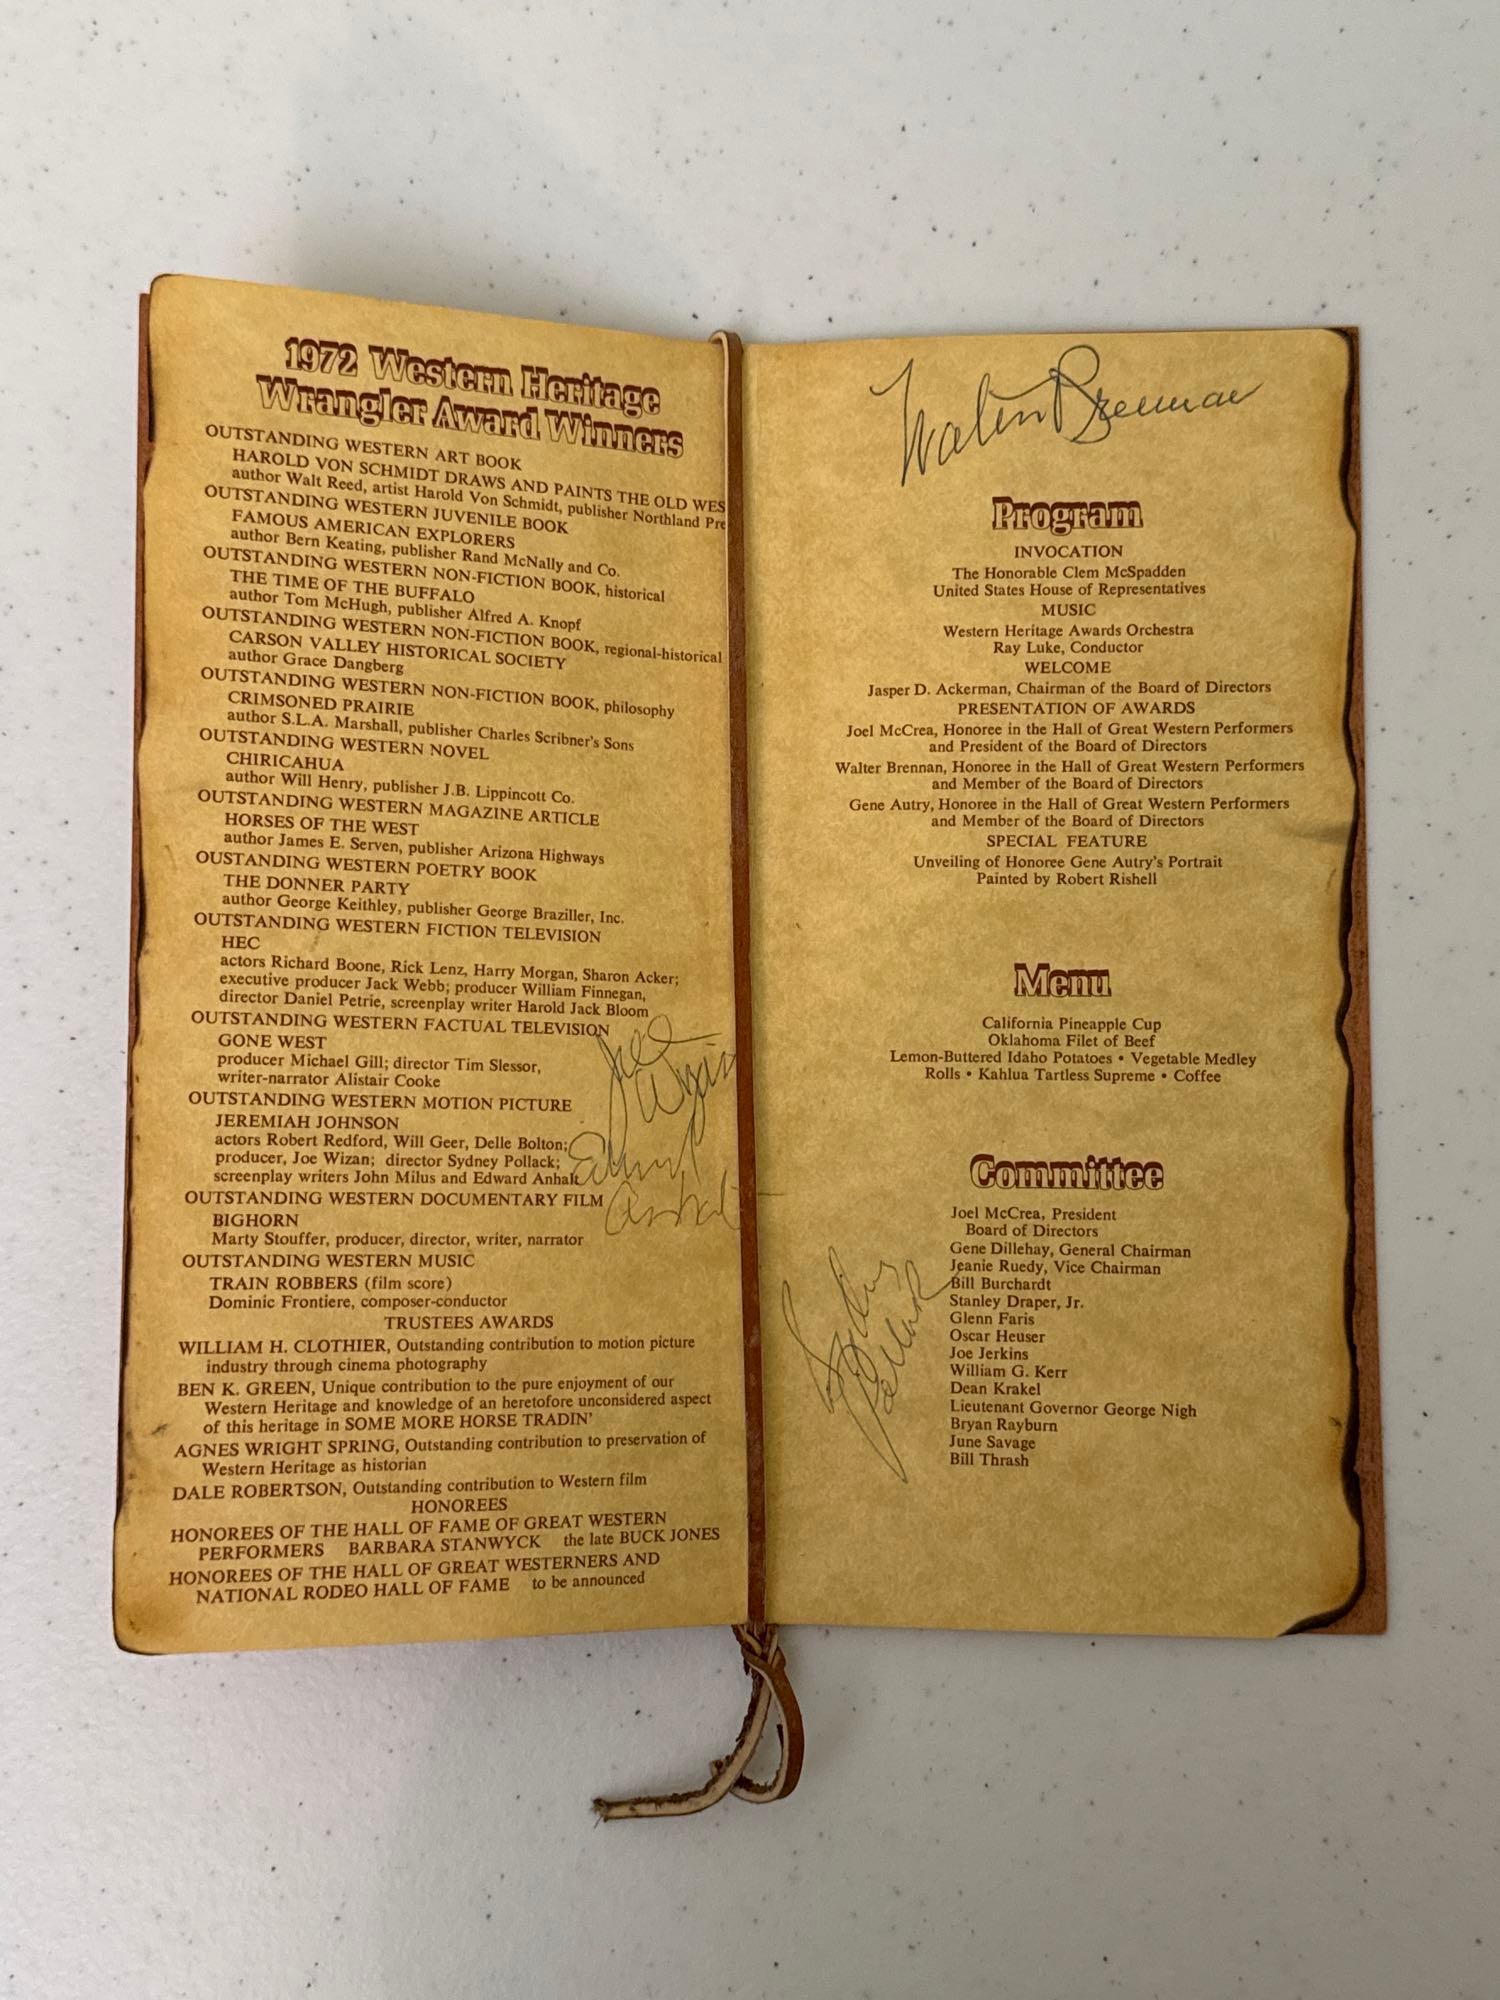 1972 Western Heritage
Wrangler Award Winners
OUTSTANDING WESTERN ART BOOK
HAROLD VON SCHMIDT DRAWS AND PAINTS THE OLD WES
author Walt Reed, artist Harold Von Schmidt, publisher Northland Pre
OUTSTANDING WESTERN JUVENILE BOOK
FAMOUS AMERICAN EXPLORERS
author Bern Keating, publisher Rand McNally and Co.
OUTSTANDING WESTERN NON-FICTION BOOK, historical
THE TIME OF THE BUFFALO
author Tom McHugh, publisher Alfred A. Knopf
OUTSTANDING WESTERN NON-FICTION BOOK, regional-historical
CARSON VALLEY HISTORICAL SOCIETY
author Grace Dangberg
OUTSTANDING WESTERN NON-FICTION BOOK, philosophy
CRIMSONED PRAIRIE
author S.L.A. Marshall, publisher Charles Scribner's Sons
OUTSTANDING WESTERN NOVEL
CHIRICAHUA
author Will Henry, publisher J.B. Lippincott Co.
OUTSTANDING WESTERN MAGAZINE ARTICLE
HORSES OF THE WEST
author James E. Serven, publisher Arizona Highways
OUSTANDING WESTERN POETRY BOOK
THE DONNER PARTY
author George Keithley, publisher George Braziller, Inc.
OUTSTANDING WESTERN FICTION TELEVISION
HEC
actors Richard Boone, Rick Lenz, Harry Morgan, Sharon Acker;
executive producer Jack Webb; producer William Finnegan,
director Daniel Petrie, screenplay writer Harold Jack Bloom
OUTSTANDING WESTERN FACTUAL TELEVISION
GONE WEST
producer Michael Gill; director Tim Slessor,
writer-narrator Alistair Cooke
OUTSTANDING WESTERN MOTION PICTURE
JEREMIAH JOHNSON
actors Robert Redford, Will Geer, Delle Bolton;
producer, Joe Wizan; director Sydney Pollack;
screenplay writers John Milus and Edward Anhalt
OUTSTANDING WESTERN DOCUMENTARY FILM
BIGHORN
Marty Stouffer, producer, director, writer, narrator
OUTSTANDING WESTERN MUSIC
TRAIN ROBBERS (film score)
Dominic Frontiere, composer-conductor
TRUSTEES AWARDS
WILLIAM H. CLOTHIER, Outstanding contribution to motion picture
industry through cinema photography
BEN K. GREEN, Unique contribution to the pure enjoyment of our
Western Heritage and knowledge of an heretofore unconsidered aspect
of this heritage in SOME MORE HORSE TRADIN'
AGNES WRIGHT SPRING, Outstanding contribution to preservation of
Western Heritage as historian
DALE ROBERTSON, Outstanding contribution to Western film
HONOREES
HONOREES OF THE HALL OF FAME OF GREAT WESTERN
PERFORMERS BARBARA STANWYCK the late BUCK JONES
HONOREES OF THE HALL OF GREAT WESTERNERS AND
NATIONAL RODEO HALL OF FAME to be announced
Joe
Wizan
Edward
Anhalt
Walter Brennan
Program
INVOCATION
The Honorable Clem McSpadden
United States House of Representatives
MUSIC
Western Heritage Awards Orchestra
Ray Luke, Conductor
WELCOME
Jasper D. Ackerman, Chairman of the Board of Directors
PRESENTATION OF AWARDS
Joel McCrea, Honoree in the Hall of Great Western Performers
and President of the Board of Directors
Walter Brennan, Honoree in the Hall of Great Western Performers
and Member of the Board of Directors
Gene Autry, Honoree in the Hall of Great Western Performers
and Member of the Board of Directors
SPECIAL FEATURE
Unveiling of Honoree Gene Autry's Portrait
Painted by Robert Rishell
Menu
California Pineapple Cup
Oklahoma Filet of Beef
Lemon-Buttered Idaho Potatoes • Vegetable Medley
Rolls • Kahlua Tartless Supreme • Coffee
Committee
Joel McCrea, President
Board of Directors
Gene Dillehay, General Chairman
Jeanie Ruedy, Vice Chairman
Bill Burchardt
Stanley Draper, Jr.
Glenn Faris
Oscar Heuser
Joe Jerkins
William G. Kerr
Dean Krakel
Lieutenant Governor George Nigh
Bryan Rayburn
June Savage
Bill Thrash
Sydney
Pollack